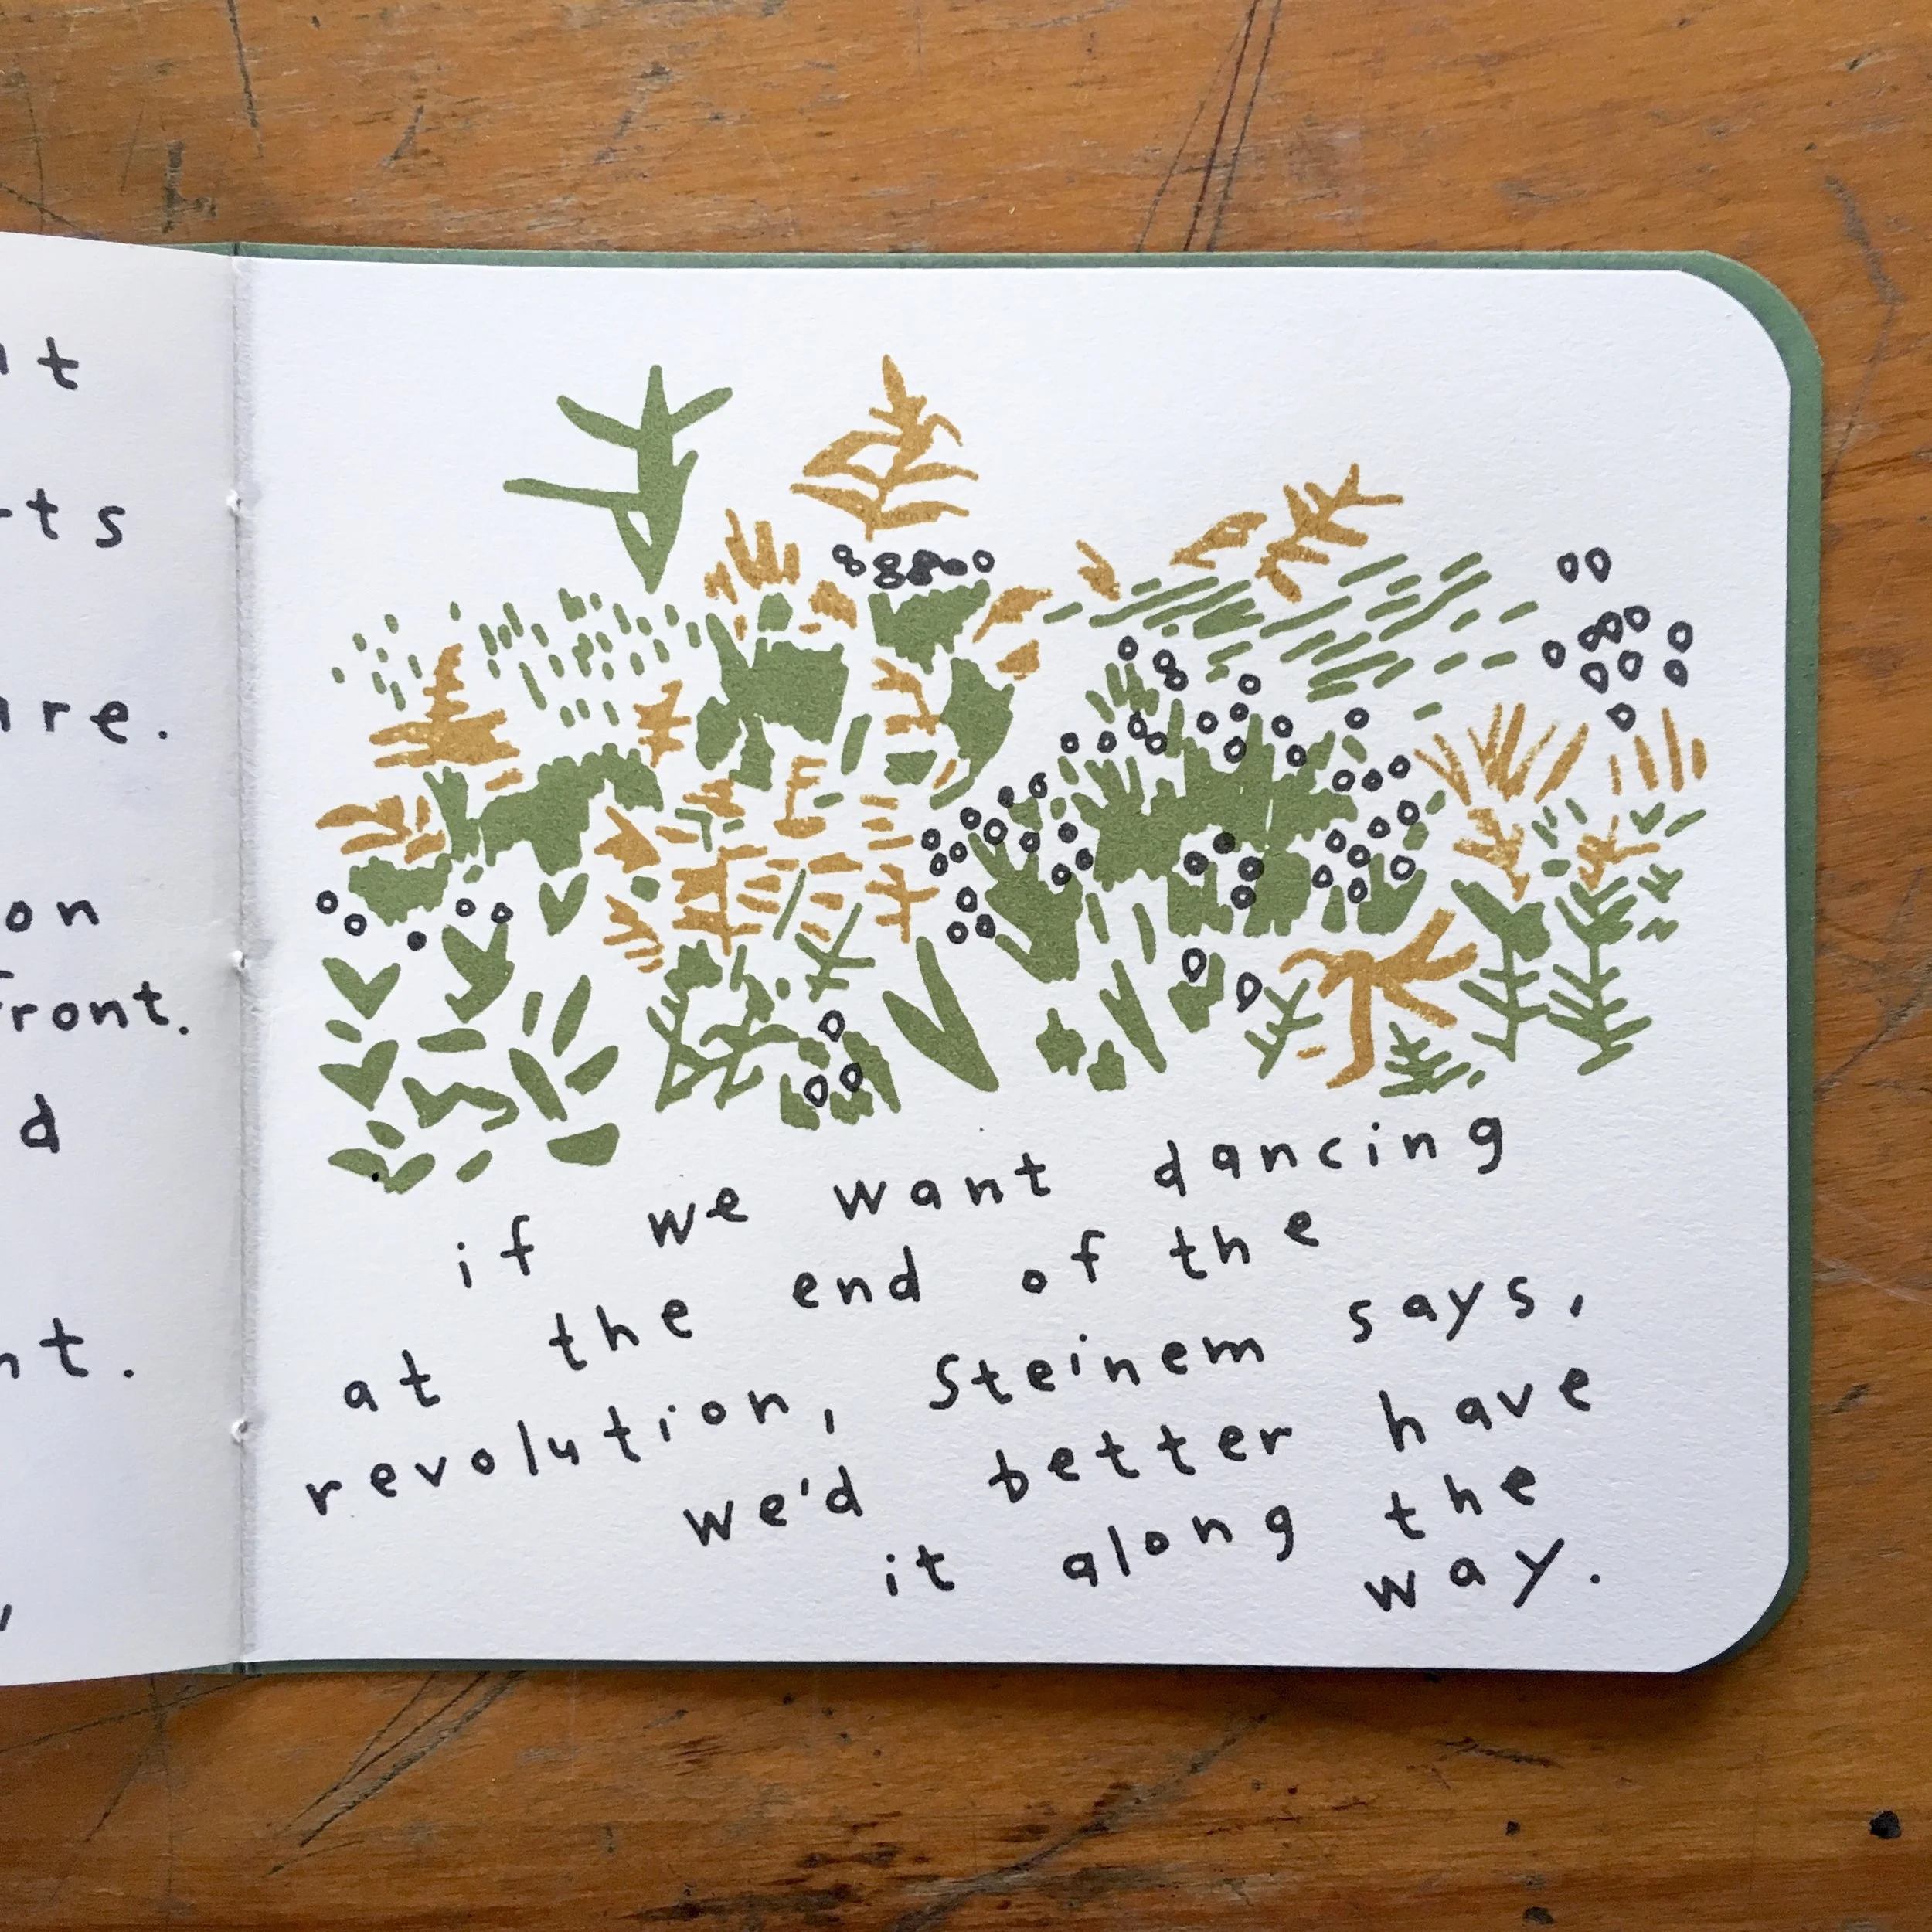 t
ts
re.
on
front.
d
t.
if we want dancing
at the end of the
revolution, Steinem says,
we'd better have
it along the
way.